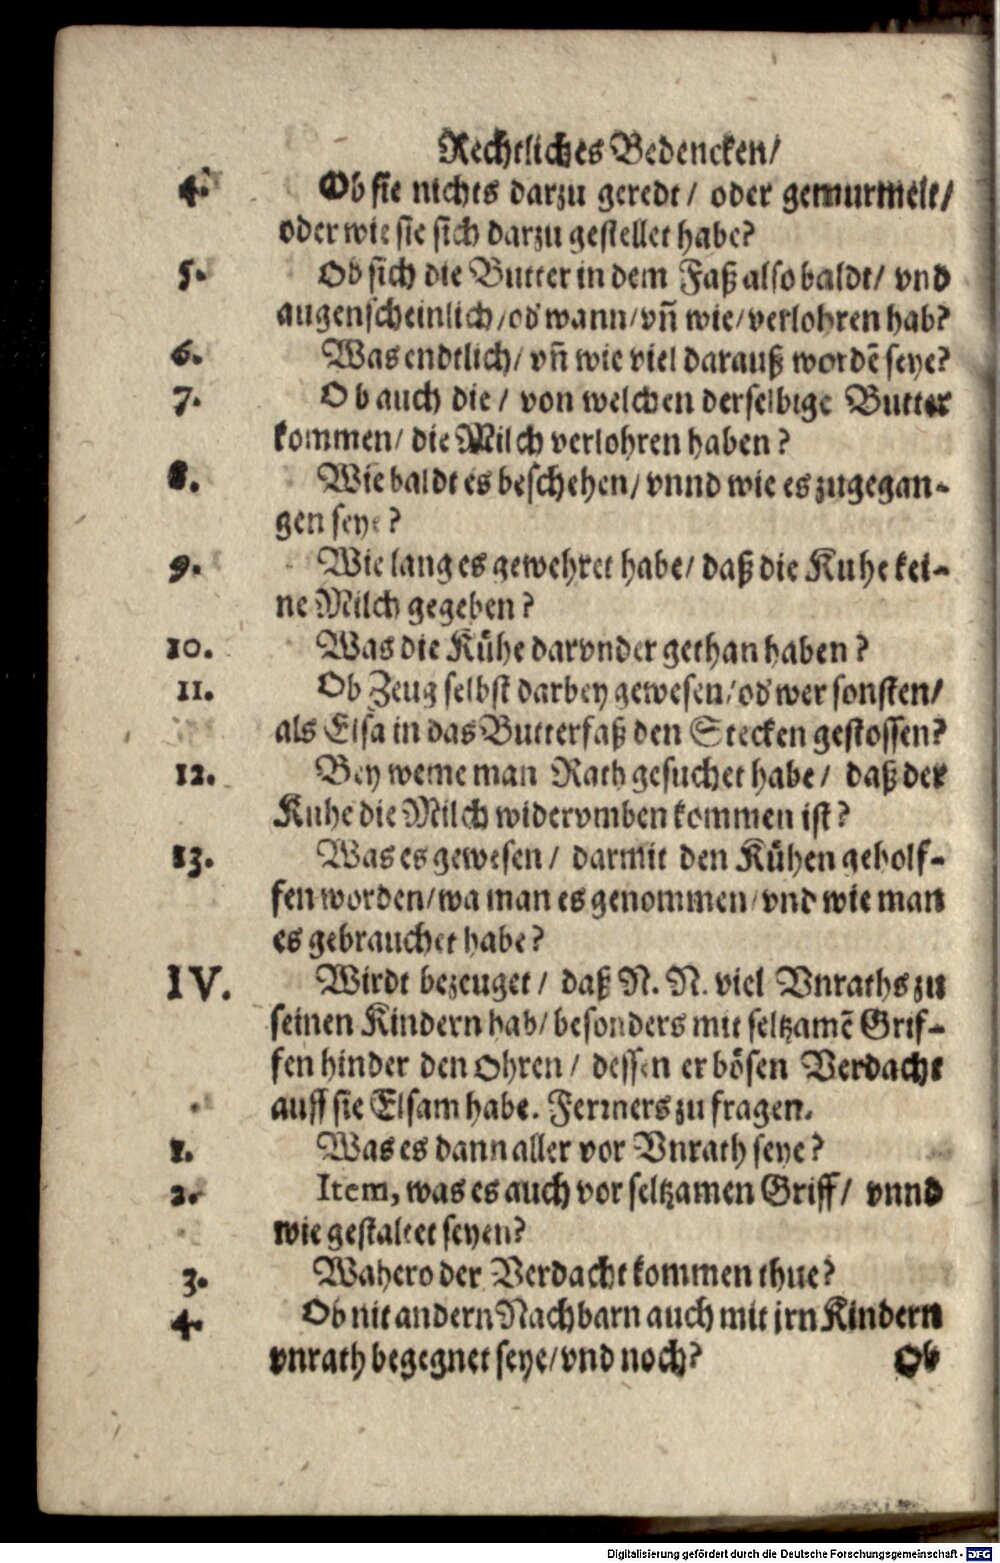 Rechtliches Bedencken/
4. Ob sie nichts darzu geredt / oder gemurmelt/
oder wie sie sich darzu gestellet habe?
5. Ob sich die Butter in dem Faß also baldt/ vnd
augenscheinlich/od wann/vñ wie/verlohren hab?
6. Was endtlich/ vñ wie viel darauß wordẽ seye?
7. Ob auch die / von welchen derselbige Butter
kommen/ die Milch verlohren haben?
8. Wie baldt es beschehen/ vnnd wie es zugegan-
gen seye?
9. Wie lang es gewehret habe/ daß die Kuhe kei-
ne Milch gegeben?
10. Was die Kühe darvnder gethan haben?
11. Ob Zeug selbst darbey gewesen/od wer sonsten/
als Elsa in das Butterfaß den Stecken gestossen?
12. Bey weme man Rath gesuchet habe / daß der
Kuhe die Milch widervmben kommen ist?
13. Was es gewesen / darmit den Kühen geholf-
fen worden/wa man es genommen/vnd wie man
es gebrauchet habe?
IV. Wirdt bezeuget / daß N. N. viel Vnraths zu
seinen Kindern hab/ besonders mit seltzamẽ Grif-
fen hinder den Ohren / dessen er bösen Verdacht
auff sie Elsam habe. Ferrners zu fragen.
1. Was es dann aller vor Vnrath seye?
2. Item, was es auch vor seltzamen Griff / vnnd
wie gestaltet seyen?
3. Wahero der Verdacht kommen thue?
4. Ob nit andern Nachbarn auch mit jrn Kindern
vnrath begegnet seye/vnd noch?
Ob
Digitalisierung gefördert durch die Deutsche Forschungsgemeinschaft - DFG